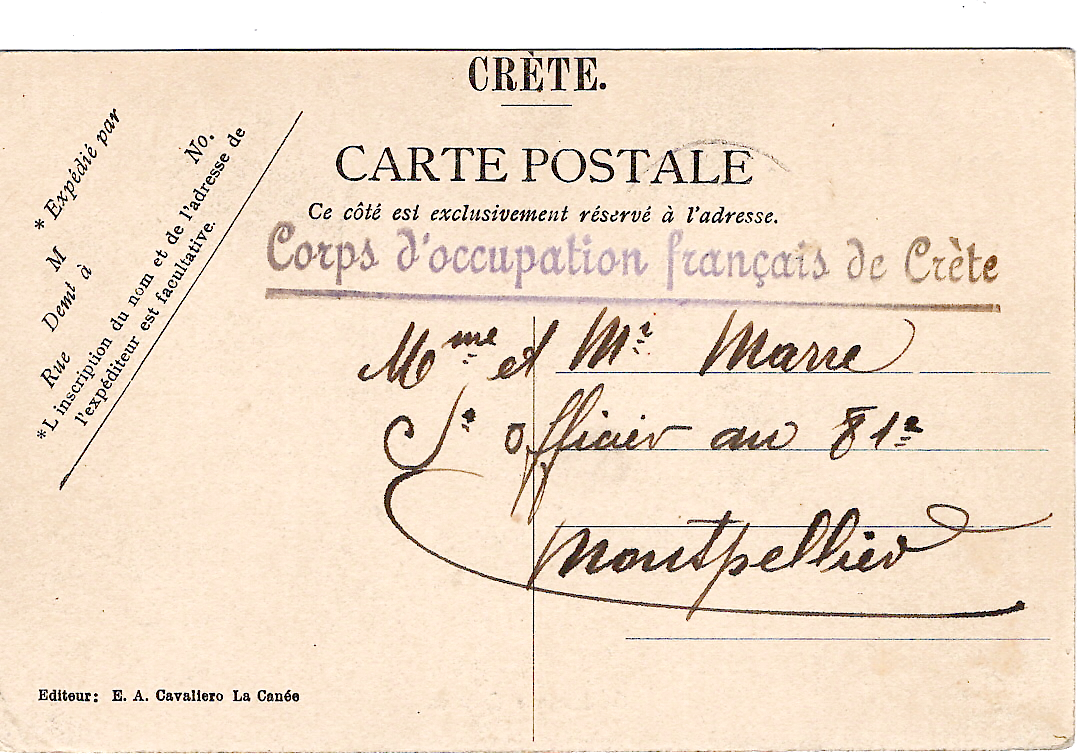 CRÈTE.
CARTE POSTALE
Ce côté est exclusivement réservé à l'adresse.
Corps d'occupation français de Crète
* Expédié par
M No.
Demt à
Rue
*L inscription du nom et de l'adresse de
l'expéditeur est facultative.
Mme et Mr Marre
Ss officier au 81e
Montpellier
Editeur: E. A. Cavaliero La Canée